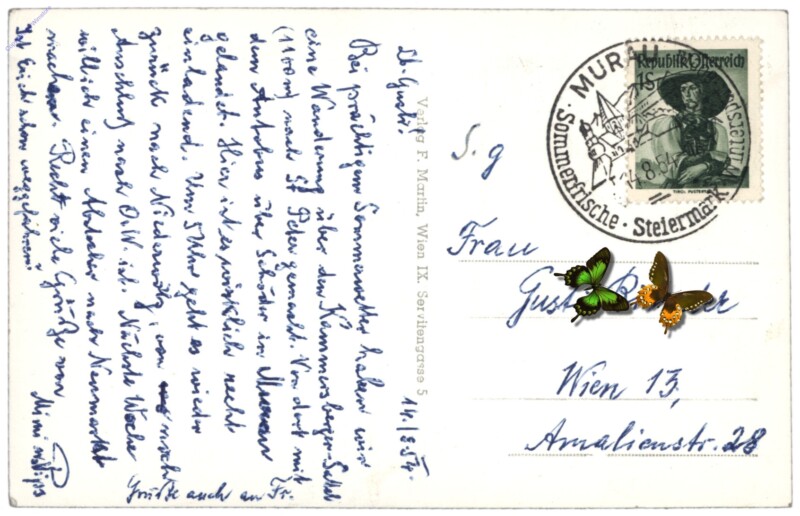 Lb. Gusti!
14./8.54.
Bei prächtigem Sommerwetter haben wir
eine Wanderung über den Kammersberger-Sattel
(1160m) nach St. Peter gemacht. Von dort mit
dem Autobus über Schöder in Murau
gelandet. Hier ist es wirklich recht
einladend. Um 5 Uhr geht es wieder
zurück nach Niederwölz, von wo noch
Anschluß nach O.W. ist. Nächste Woche
will ich einen Abstecher nach Neumarkt
machen. Recht viele Grüße von
Mimi
Ist Erich schon weggefahren?
Grüße auch an Fr.
Verlag F. Martin, Wien IX. Servitengasse 5
MURAU
Sommerfrische · Steiermark
Wintersp
8.54
Republik Österreich
1S
S. g
Frau
Wien 13,
Amalienstr. 28